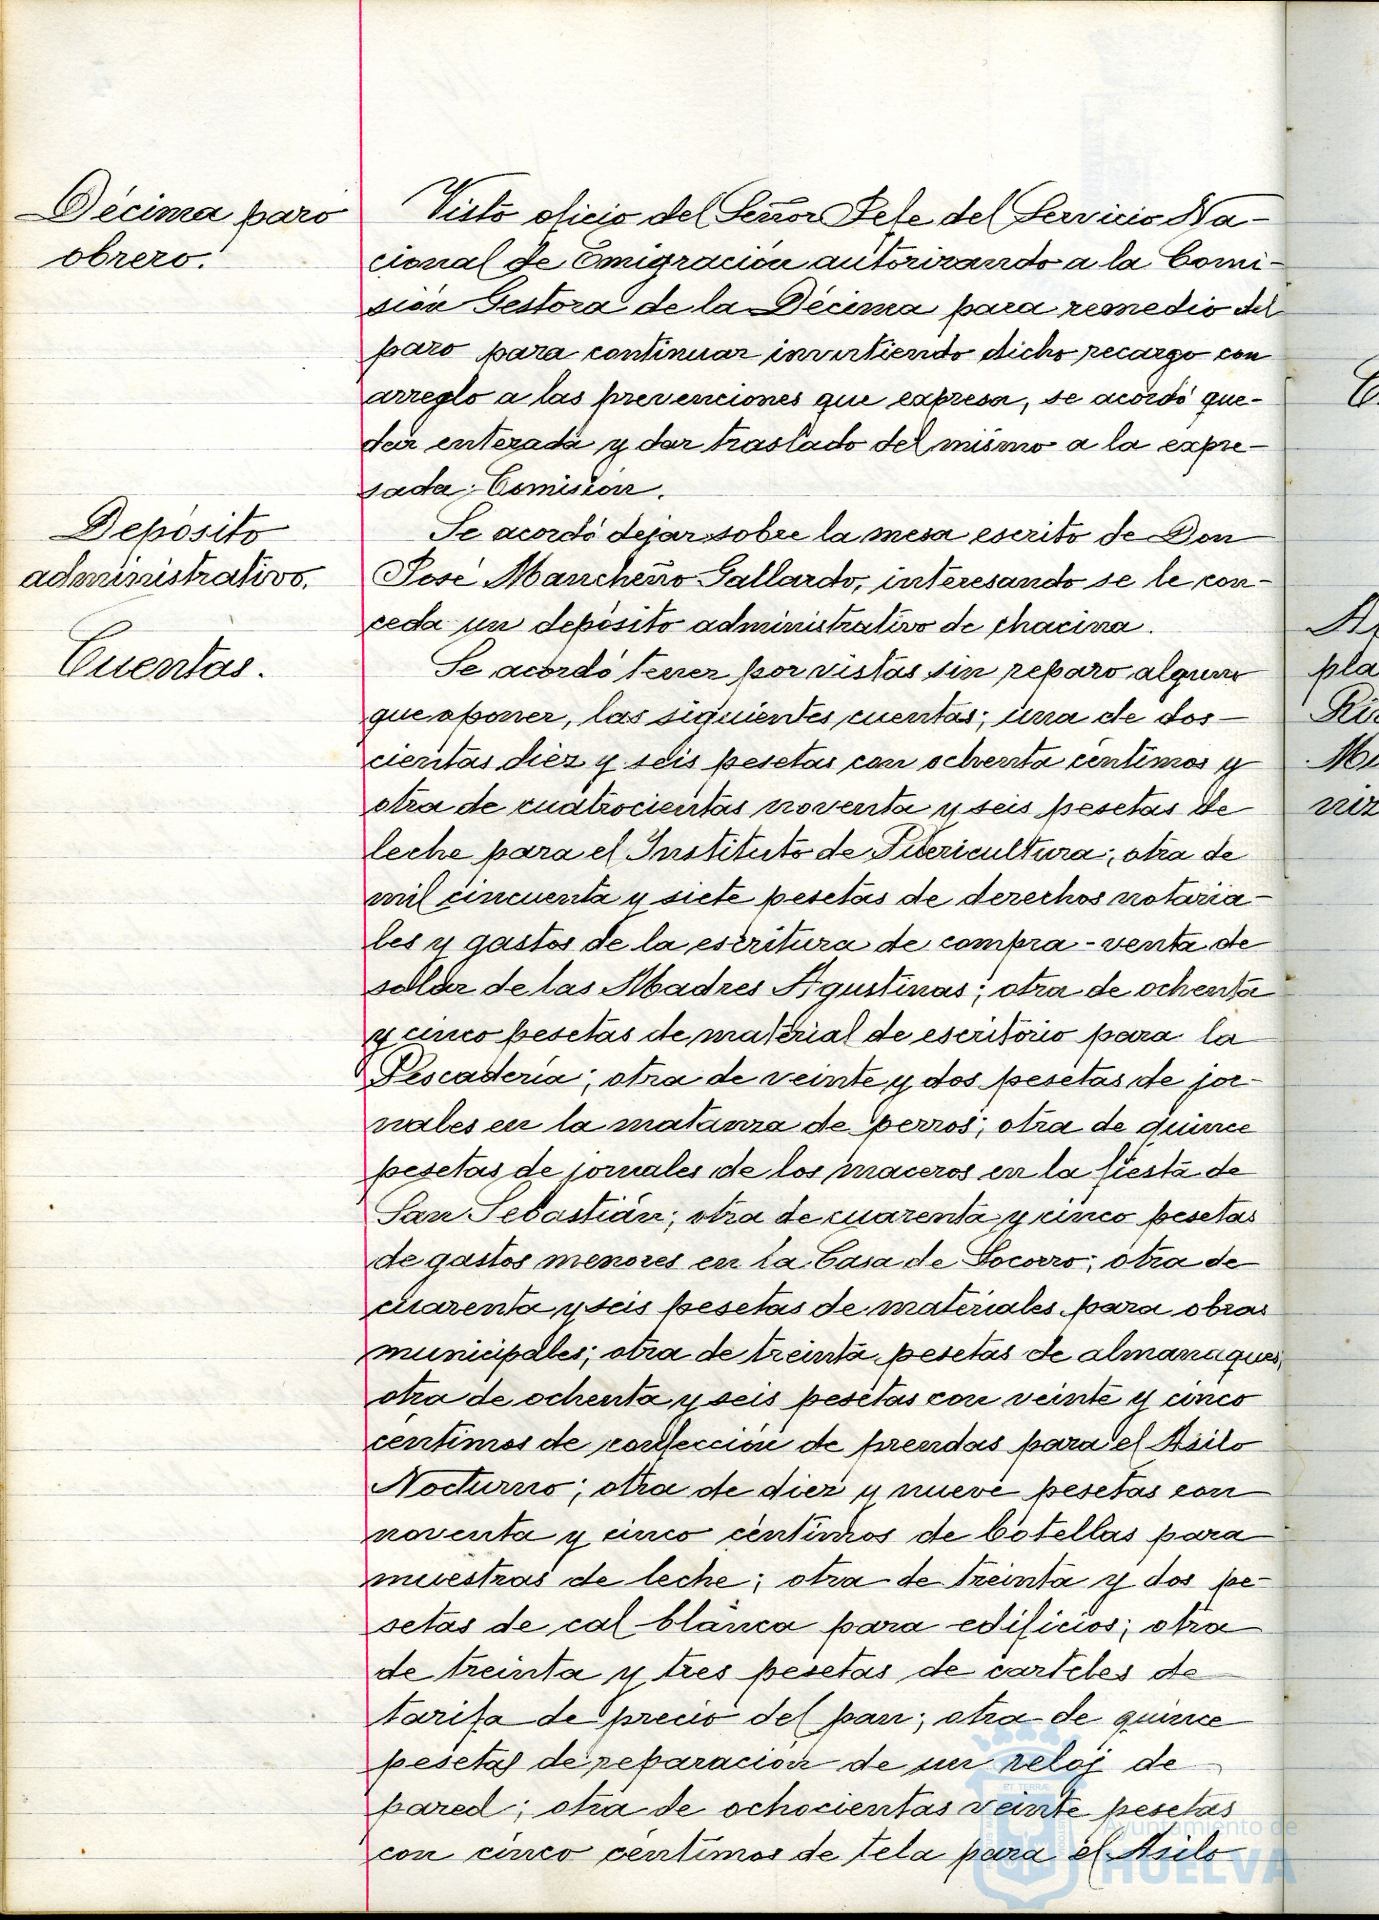 Décima paro
obrero.
Visto oficio del Señor Jefe del Servicio Na-
cional de Emigración autorizando a la Comi-
sión Gestora de la Décima para remedio del
paro para continuar invirtiendo dicho recargo con
arreglo a las prevenciones que expresa, se acordó que-
dar enterada y dar traslado del mismo a la expre-
sada Comisión.
Depósito
administrativo.
Se acordó dejar sobre la mesa escrito de Don
José Mancheño Gallardo, interesando se le con-
ceda un depósito administrativo de chacina.
Cuentas.
Se acordó tener por vistas sin reparo alguno
que oponer, las siguientes cuentas; una de dos-
cientas diez y seis pesetas con ochenta céntimos y
otra de cuatrocientas noventa y seis pesetas de
leche para el Instituto de Puericultura; otra de
mil cincuenta y siete pesetas de derechos notaria-
les y gastos de la escritura de compra-venta de
solar de las Madres Agustinas; otra de ochenta
y cinco pesetas de material de escritorio para la
Pescadería; otra de veinte y dos pesetas de jor-
nales en la matanza de perros; otra de quince
pesetas de jornales de los maceros en la fiesta de
San Sebastián; otra de cuarenta y cinco pesetas
de gastos menores en la Casa de Socorro; otra de
cuarenta y seis pesetas de materiales para obras
municipales; otra de treinta pesetas de almanaques,
otra de ochenta y seis pesetas con veinte y cinco
céntimos de confección de prendas para el Asilo
Nocturno; otra de diez y nueve pesetas con
noventa y cinco céntimos de botellas para
muestras de leche; otra de treinta y dos pe-
setas de cal blanca para edificios; otra
de treinta y tres pesetas de carteles de
tarifa de precio del pan; otra de quince
pesetas de reparación de un reloj de
pared; otra de ochocientas veinte pesetas
con cinco céntimos de tela para el Asilo
Ayuntamiento de
HUELVA
pla